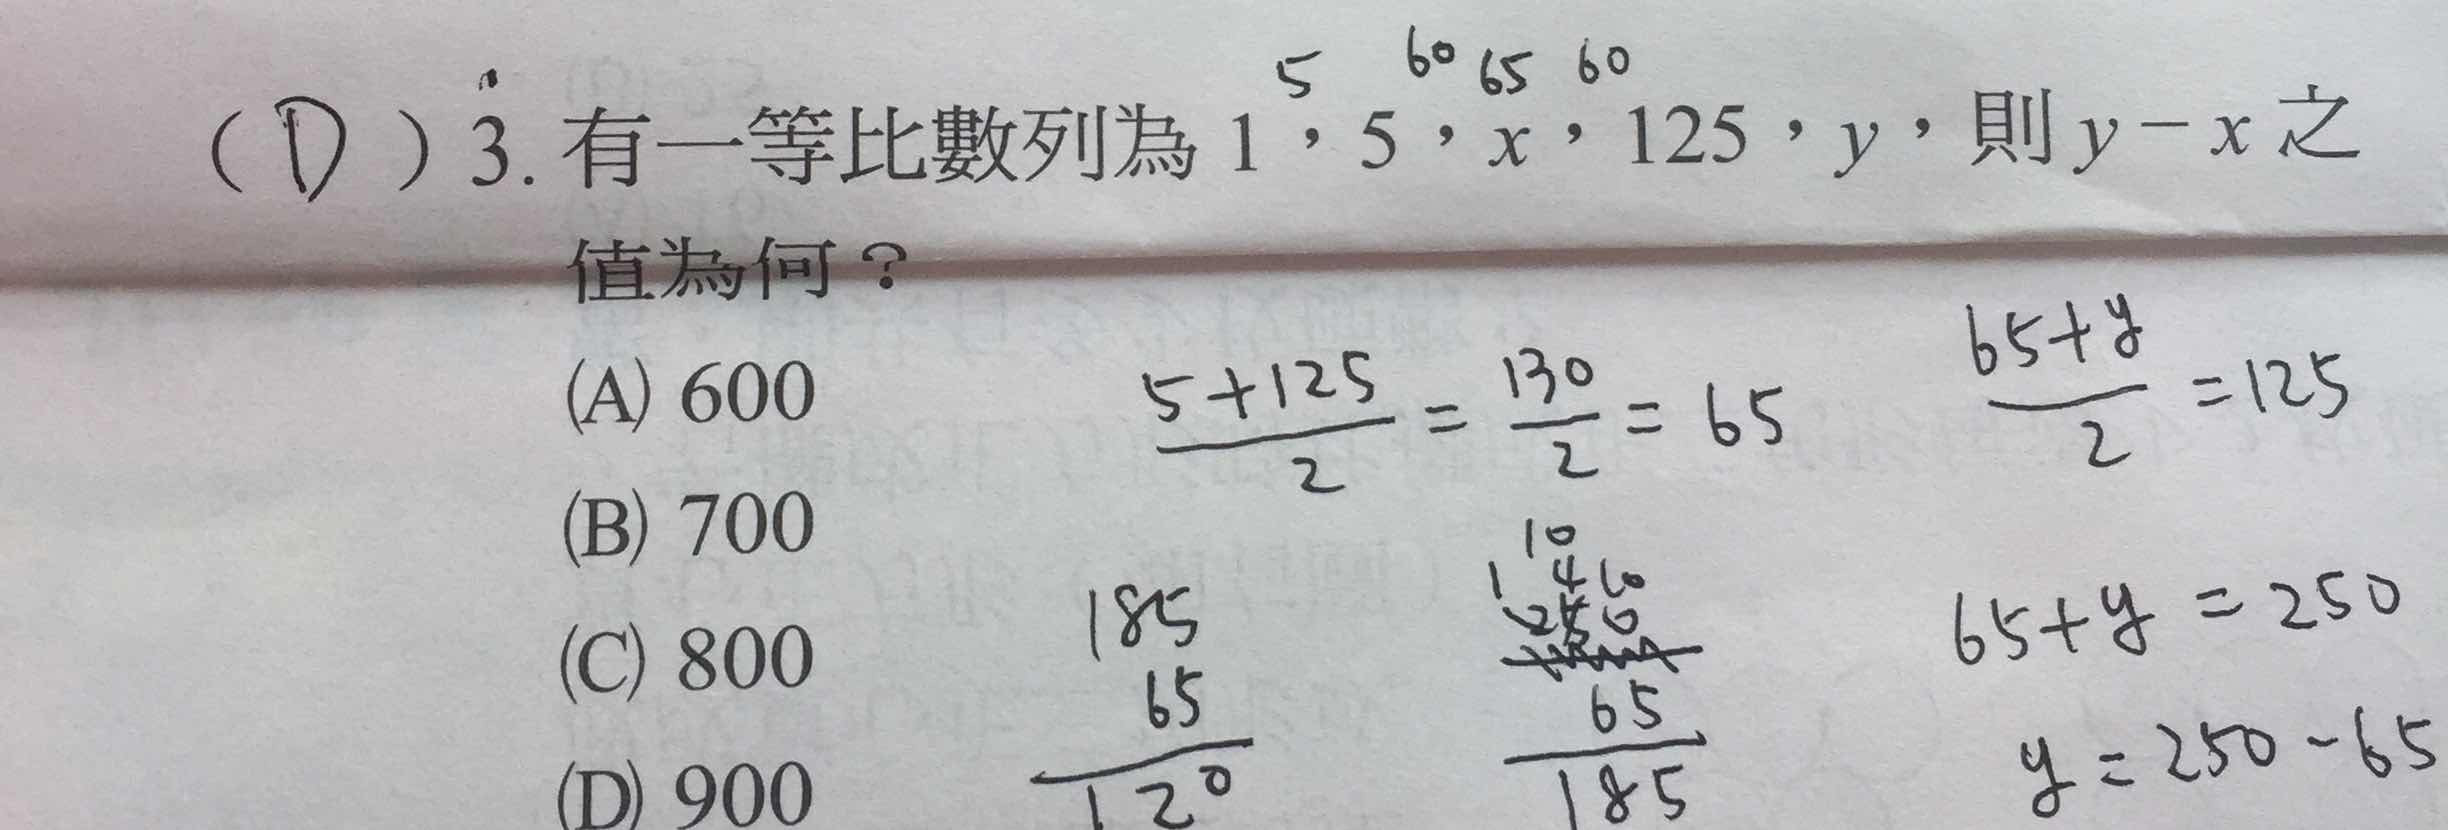 5 60 65 60
( D ) 3. 有一等比數列為 1，5，x，125，y，則 y－x 之
值為何？
(A) 600
(B) 700
(C) 800
(D) 900
5+125/2 = 130/2 = 65
65+y/2 = 125
65+y = 250
y = 250-65
10
1 4 10
250
65
185
185
65
120